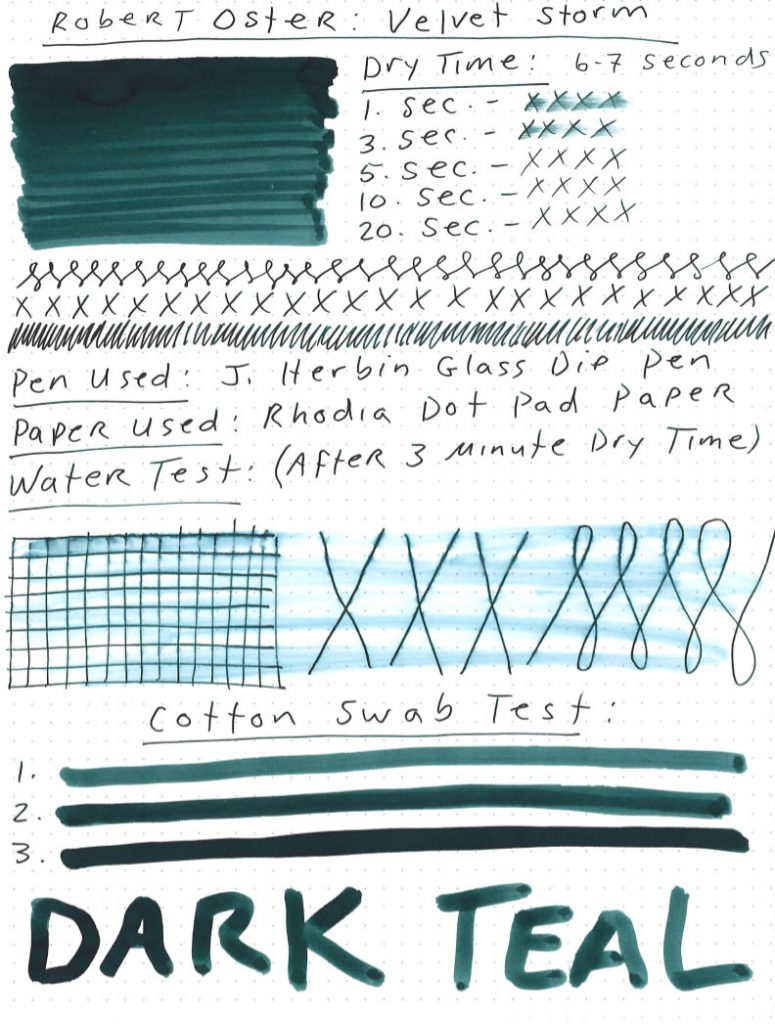 Robert Oster: Velvet Storm
Dry Time: 6-7 seconds
1. sec. - xxxx
3. sec. - xxxx
5. sec. - xxxx
10. sec. - xxxx
20. sec. - xxxx
x x x x x x x x x x x x x x x x x x x x x x x x x x
Pen Used: J. Herbin Glass Dip Pen
Paper Used: Rhodia Dot Pad Paper
Water Test: (After 3 minute Dry Time)
X X X
Cotton Swab Test:
1.
2.
3.
DARK TEAL